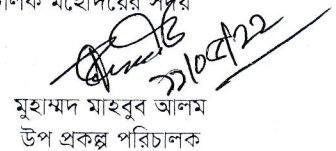 মহোদয়ের সদয়
২২/০৫/২২
মুহাম্মদ মাহবুব আলম
উপ প্রকল্প পরিচালক